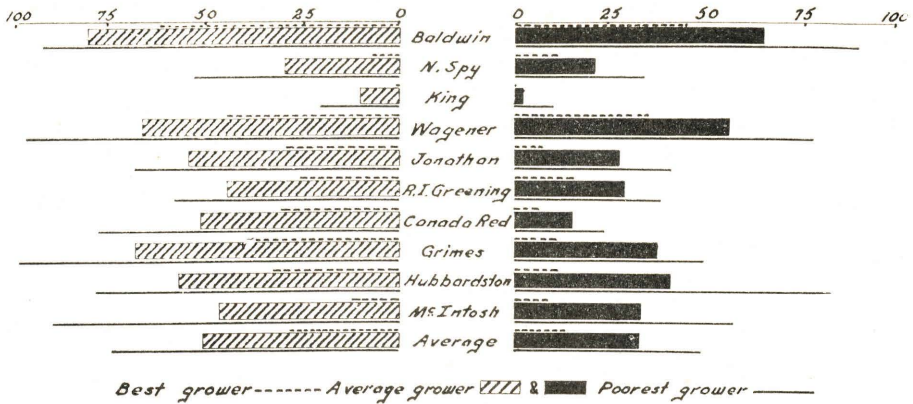 100 75 50 25 0 0 25 50 75 100
Baldwin
N. Spy
King
Wagener
Jonathan
R.I. Greening
Canada Red
Grimes
Hubbardston
Mc. Intosh
Average
Best grower Average grower & Poorest grower